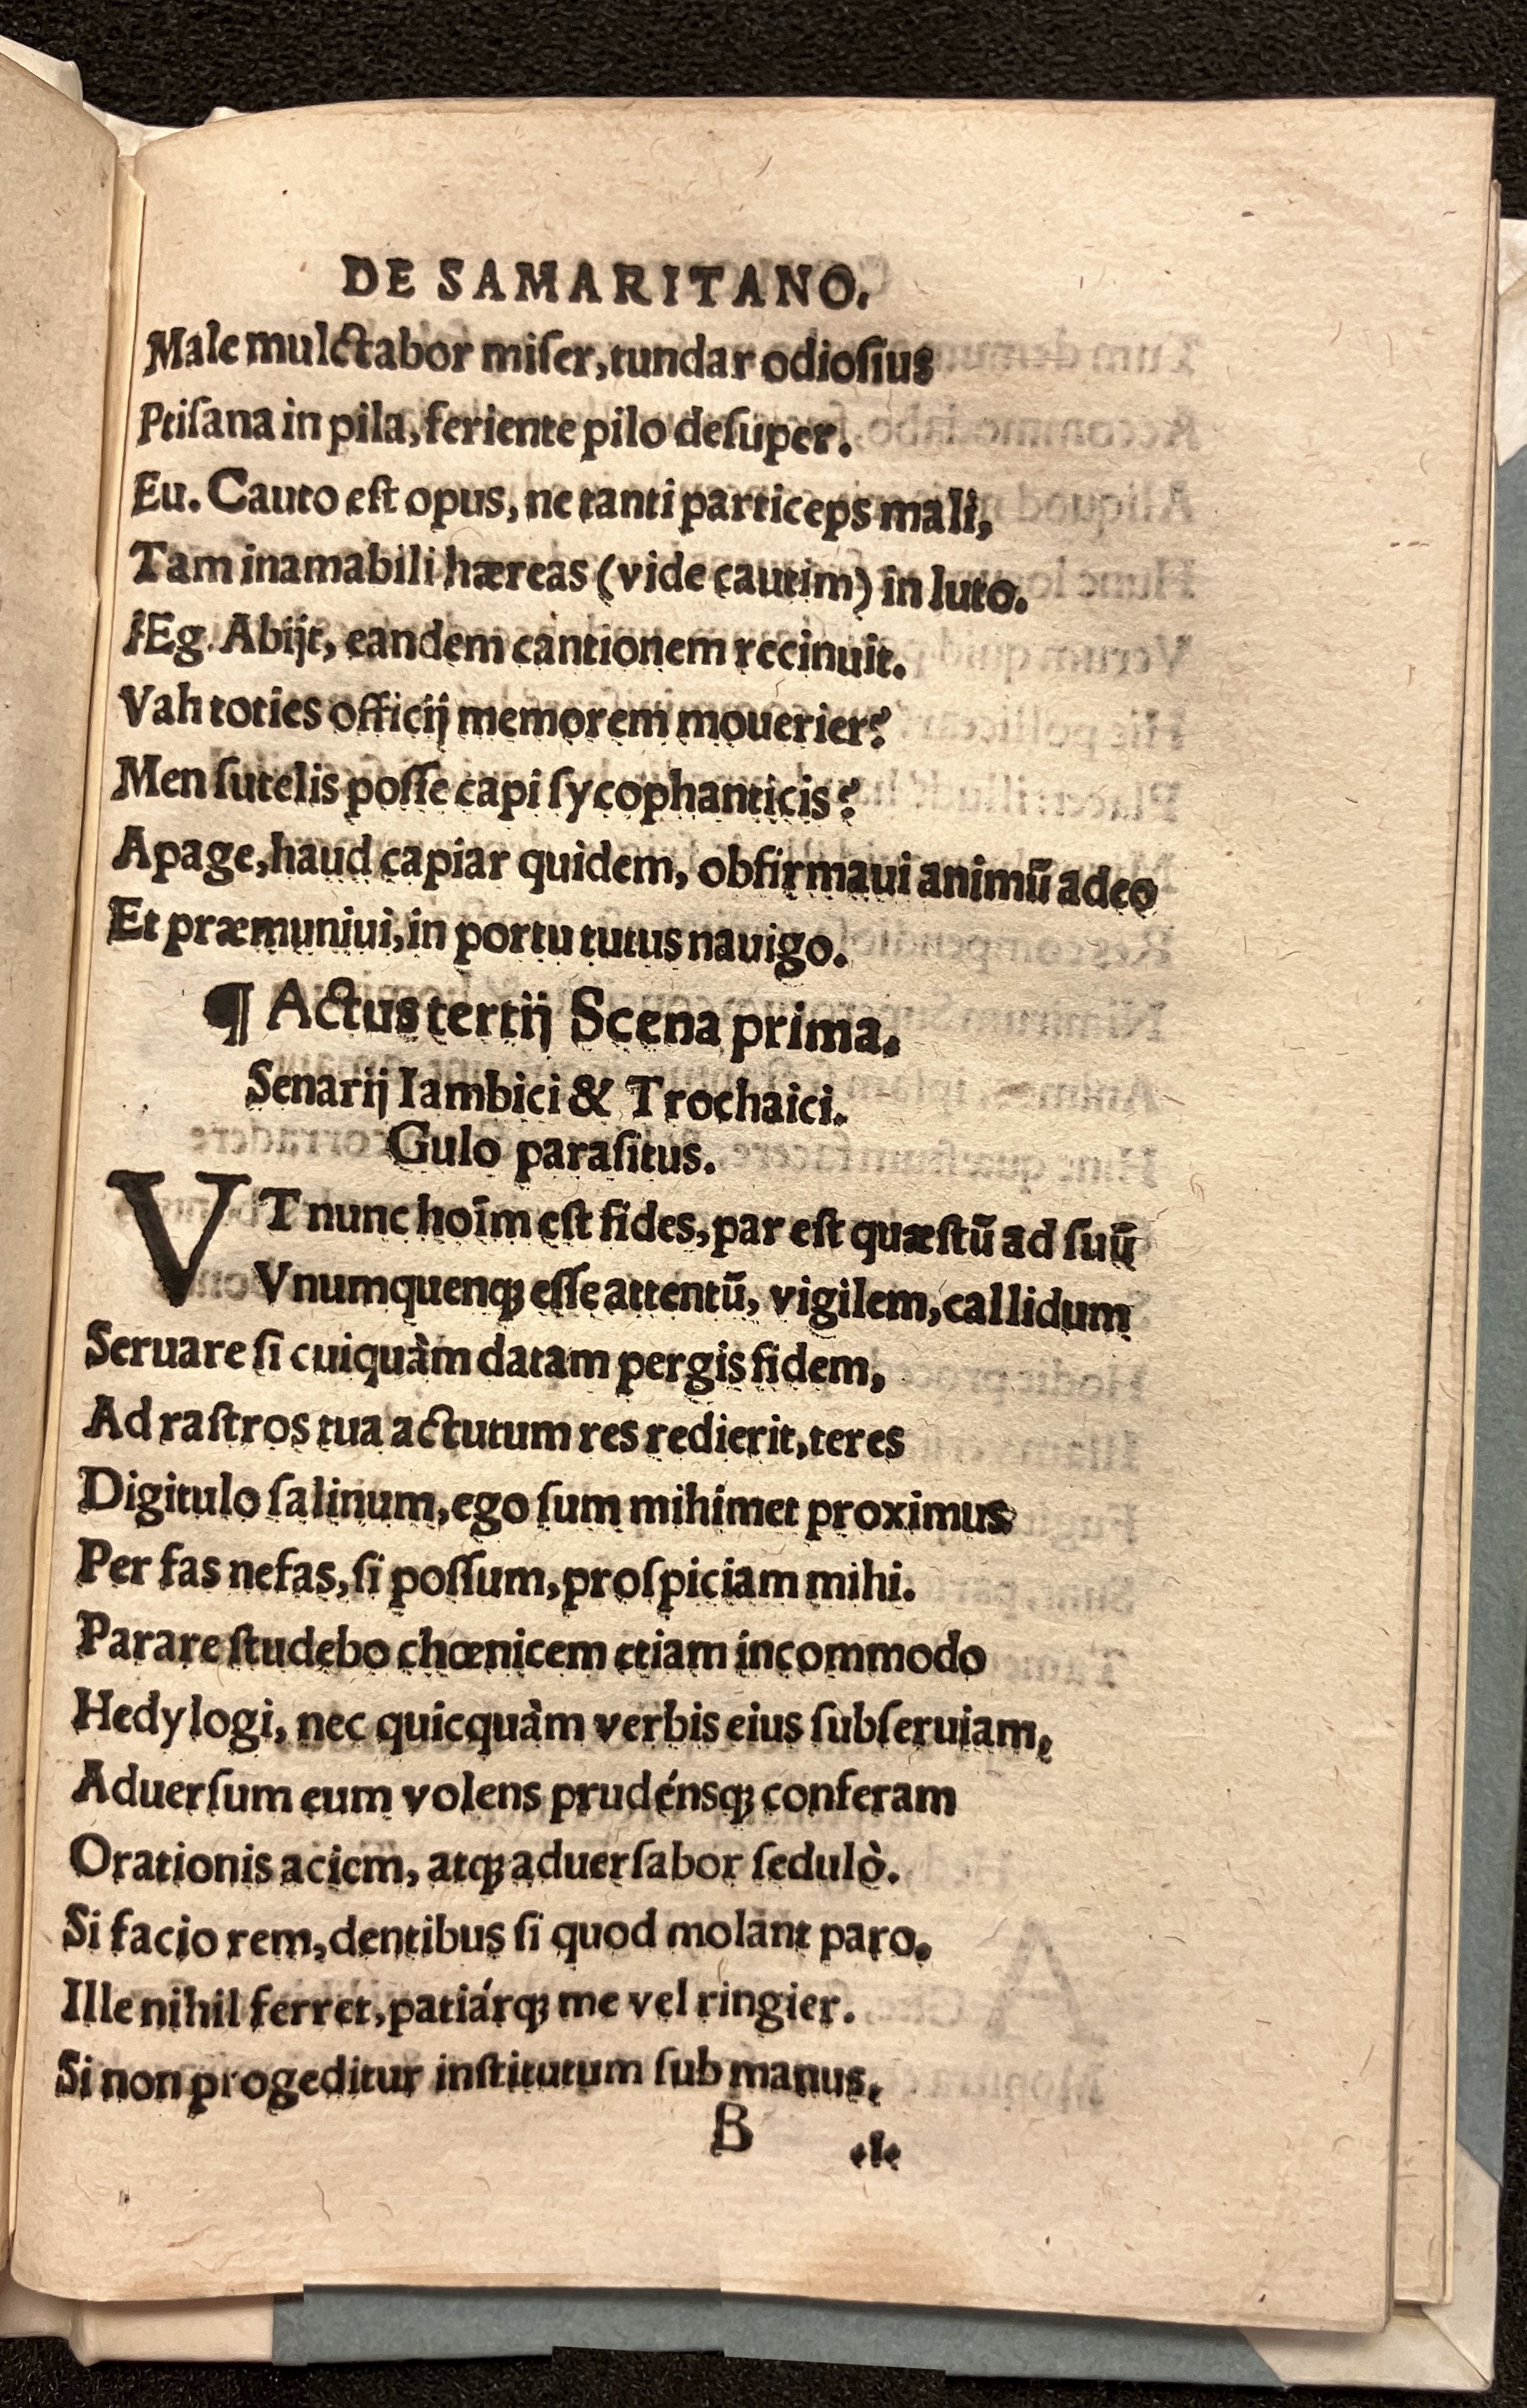 DE SAMARITANO.
Male mulctabor miſer, tundar odioſius
Ptiſana in pila, feriente pilo deſuper.
Eu. Cauto eſt opus, ne tanti particeps mali,
Tam inamabili hæreas (vide cautim) in luto.
Eg. Abijt, eandem cantionem recinuit.
Vah toties officij memorem mouerier?
Men ſutelis poſſe capi ſycophanticis?
Apage, haud capiar quidem, obfirmaui animū adeo
Et præmuniui, in portu tutus nauigo.
¶ Actus tertij Scena prima.
Senarij Iambici & Trochaici.
Gulo paraſitus.
VT nunc hoīm eſt fides, par eſt quæſtū ad ſuū
Vnumquenqꝫ eſſe attentū, vigilem, callidum
Seruare ſi cuiquàm datam pergis fidem,
Ad raſtros tua actutum res redierit, teres
Digitulo ſalinum, ego ſum mihimet proximus
Per fas nefas, ſi poſſum, proſpiciam mihi.
Parare ſtudebo chœnicem etiam incommodo
Hedylogi, nec quicquàm verbis eius ſubſeruiam,
Aduerſum eum volens prudénsqꝫ conferam
Orationis aciem, atqꝫ aduerſabor ſedulò.
Si facio rem, dentibus ſi quod molant paro.
Ille nihil ferret, patiárqꝫ me vel ringier.
Si non progeditur inſtitutum ſub manus,
B